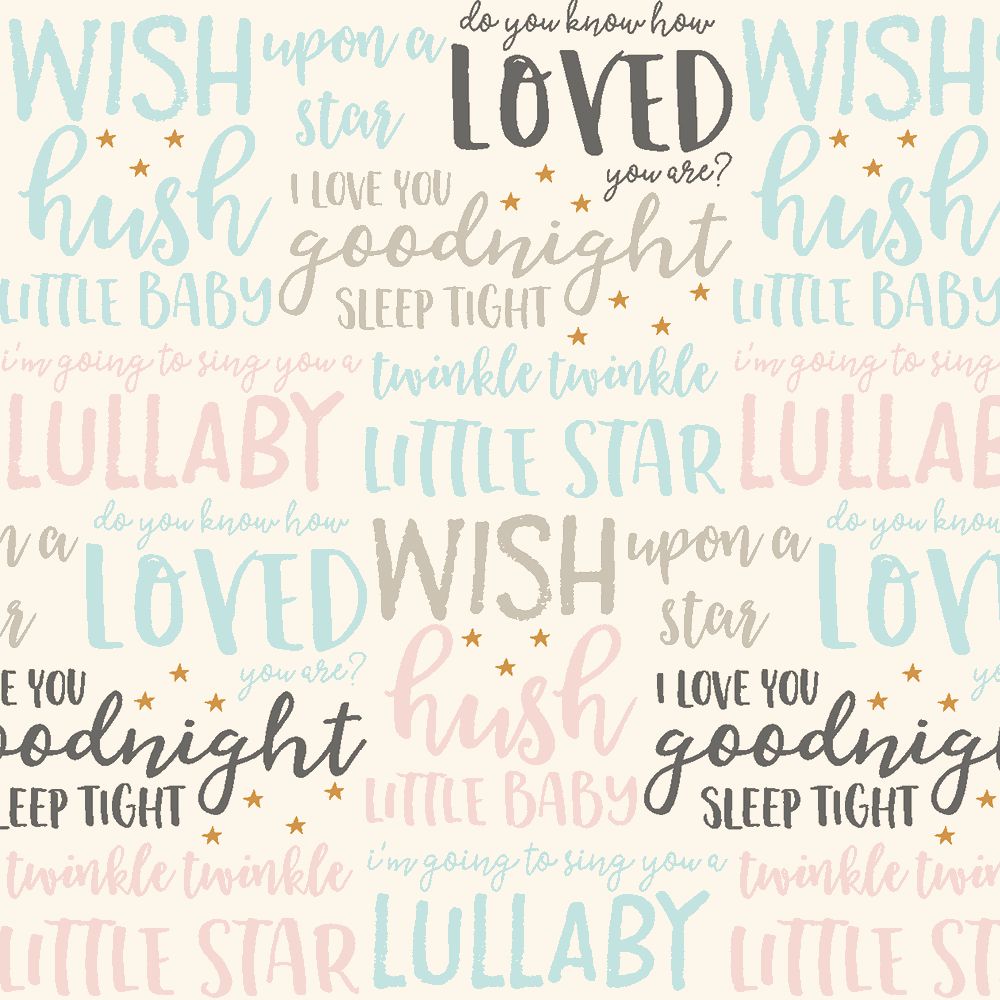 do you know how
WISH upon a LOVED WISH
star
hush you are? hush
I LOVE YOU
goodnight
LITTLE BABY SLEEP TIGHT LITTLE BABY
i'm going to sing you a twinkle twinkle i'm going to sing
LULLABY LITTLE STAR LULLAB
do you know how WISH upon a do you know
n a LOVED star LOV
r you are? hush yo
E YOU I LOVE YOU
oodnight goodnigh
LEEP TIGHT LITTLE BABY SLEEP TIGHT
twinkle twinkle i'm going to sing you a twinkle twin
LITTLE STAR LULLABY LITTLE ST